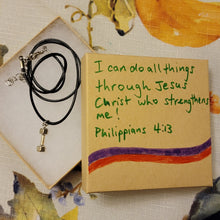 I can do all things
through Jesus
Christ who strengthens
me!
Philippians 4:13